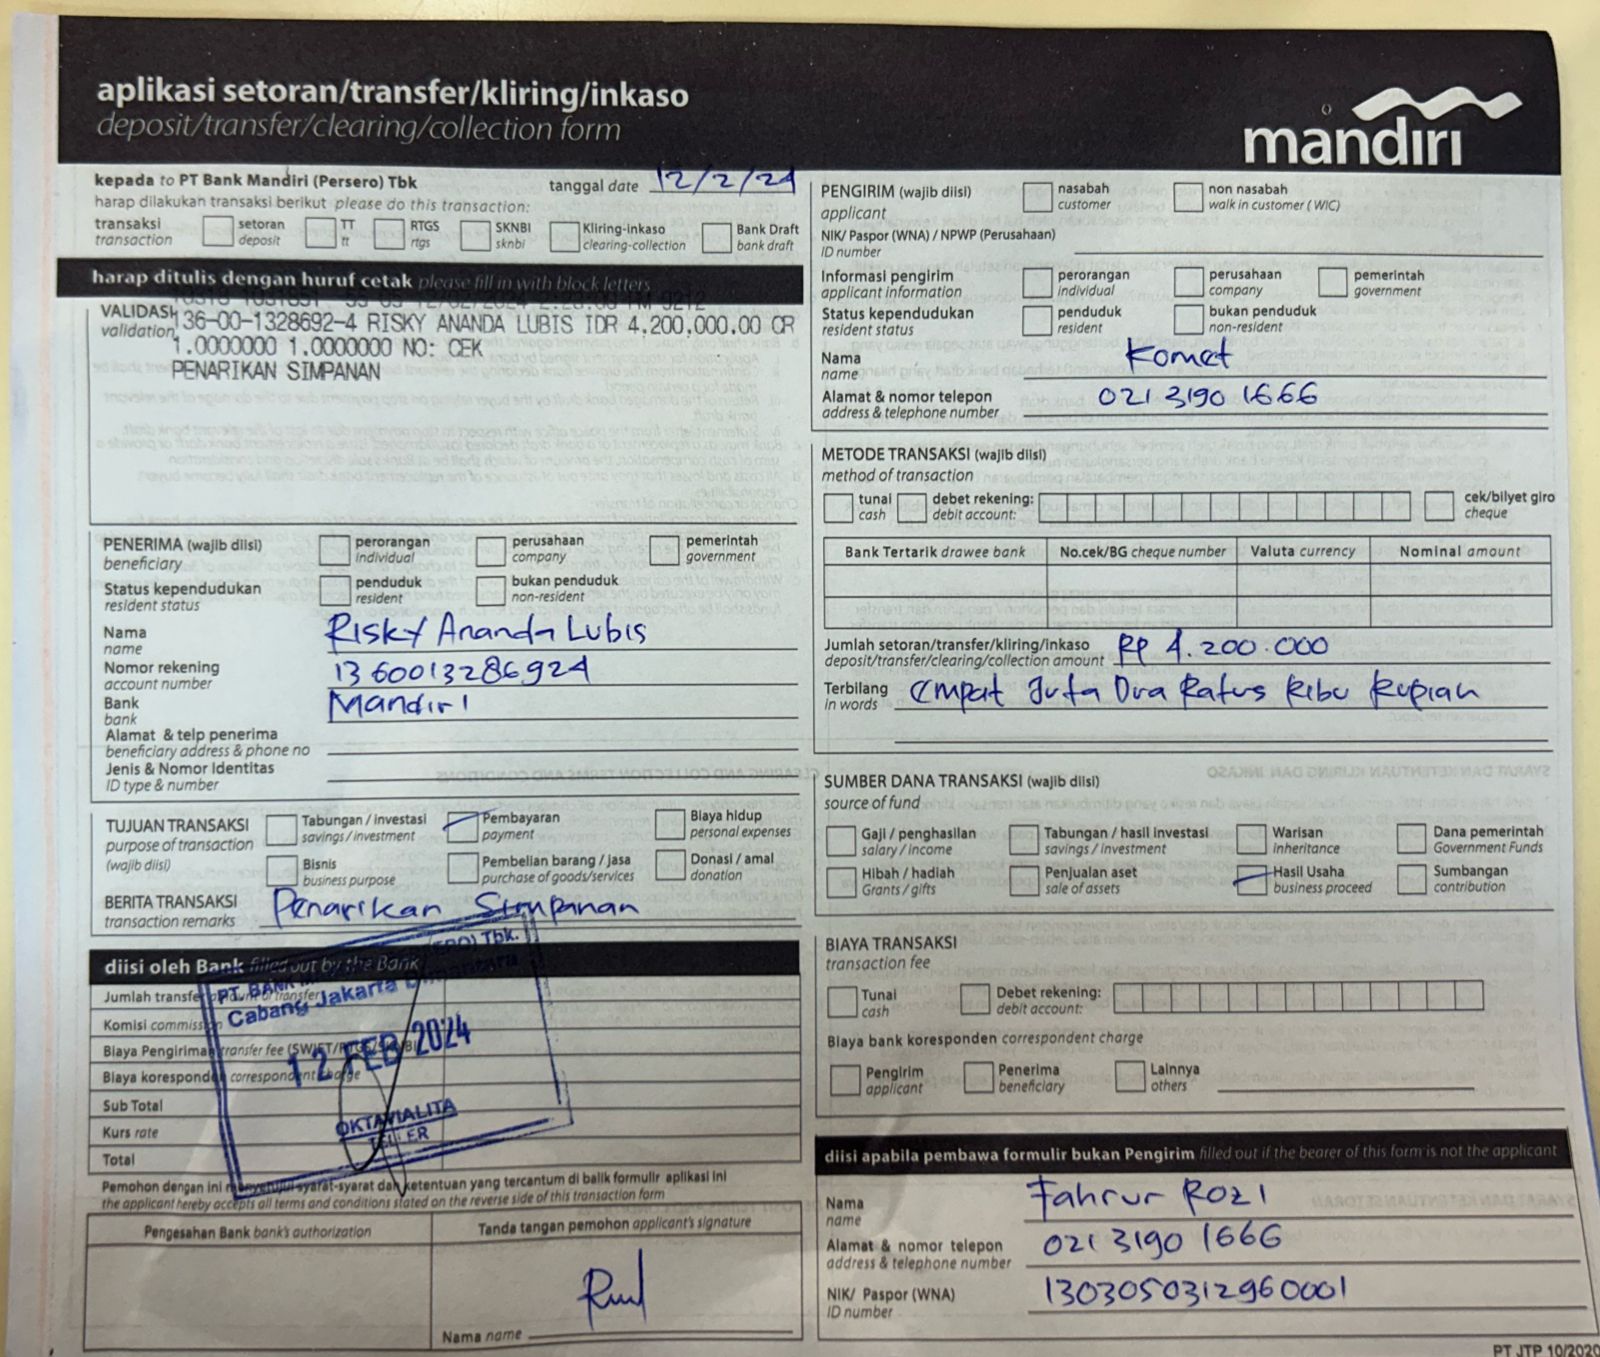 aplikasi setoran/transfer/kliring/inkaso
deposit/transfer/clearing/collection form
mandiri
kepada to PT Bank Mandiri (Persero) Tbk
tanggal date 12/2/24
harap dilakukan transaksi berikut please do this transaction:
transaksi
transaction
setoran
deposit
TT
tt
RTGS
rtgs
SKNBI
sknbi
Kliring-inkaso
clearing-collection
Bank Draft
bank draft
harap ditulis dengan huruf cetak please fill in with block letters
VALIDASI
validation
136-00-1328692-4 RISKY ANANDA LUBIS IDR 4.200.000.00 CR
1.0000000 1.0000000 NO: CEK
PENARIKAN SIMPANAN
PENERIMA (wajib diisi)
beneficiary
perorangan
individual
perusahaan
company
pemerintah
government
Status kependudukan
resident status
penduduk
resident
bukan penduduk
non-resident
Nama
name
Risky Ananda Lubis
Nomor rekening
account number
1360013286924
Bank
bank
Mandiri
Alamat & telp penerima
beneficiary address & phone no
Jenis & Nomor Identitas
ID type & number
TUJUAN TRANSAKSI
purpose of transaction
(wajib diisi)
Tabungan / investasi
savings / investment
Pembayaran
payment
Biaya hidup
personal expenses
Bisnis
business purpose
Pembelian barang / jasa
purchase of goods/services
Donasi / amal
donation
BERITA TRANSAKSI
transaction remarks
Penarikan Simpanan
diisi oleh Bank filled out by the Bank
Jumlah transfer amount of transfer
Komisi commission
Biaya Pengiriman transfer fee
Biaya koresponden correspondent charge
Sub Total
Kurs rate
Total
PT. BANK
Tbk.
Cabang Jakarta
12 FEB 2024
OKTAVIALITA
TELLER
Pemohon dengan ini menyetujui syarat-syarat dan ketentuan yang tercantum di balik formulir aplikasi ini
the applicant hereby accepts all terms and conditions stated on the reverse side of this transaction form
Pengesahan Bank bank's authorization
Tanda tangan pemohon applicant's signature
Nama name
PENGIRIM (wajib diisi)
applicant
nasabah
customer
non nasabah
walk in customer (WIC)
NIK/ Paspor (WNA) / NPWP (Perusahaan)
ID number
Informasi pengirim
applicant information
perorangan
individual
perusahaan
company
pemerintah
government
Status kependudukan
resident status
penduduk
resident
bukan penduduk
non-resident
Nama
name
Komet
Alamat & nomor telepon
address & telephone number
021 3190 1666
METODE TRANSAKSI (wajib diisi)
method of transaction
tunai
cash
debet rekening:
debit account:
cek/bilyet giro
cheque
Bank Tertarik drawee bank
No.cek/BG cheque number
Valuta currency
Nominal amount
Jumlah setoran/transfer/kliring/inkaso
deposit/transfer/clearing/collection amount
RP 4.200.000
Terbilang
in words
Empat Juta Dua Ratus Ribu Rupiah
SUMBER DANA TRANSAKSI (wajib diisi)
source of fund
Gaji / penghasilan
salary / income
Tabungan / hasil investasi
savings / investment
Warisan
inheritance
Dana pemerintah
Government Funds
Hibah / hadiah
Grants / gifts
Penjualan aset
sale of assets
Hasil Usaha
business proceed
Sumbangan
contribution
BIAYA TRANSAKSI
transaction fee
Tunai
cash
Debet rekening:
debit account:
Biaya bank koresponden correspondent charge
Pengirim
applicant
Penerima
beneficiary
Lainnya
others
diisi apabila pembawa formulir bukan Pengirim filled out if the bearer of this form is not the applicant
Nama
name
Fahrur Rozi
Alamat & nomor telepon
address & telephone number
021 3190 1666
NIK/ Paspor (WNA)
ID number
1303050312960001
PT JTP 10/2020